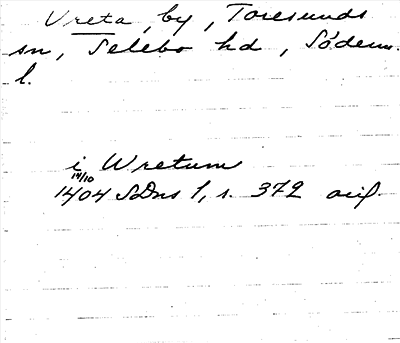 Vreta, by, Toresunds
sn, Selebo hd, Söderm.
l.
i Wretum
14/10
1404 SDns 1, s. 372 avi.